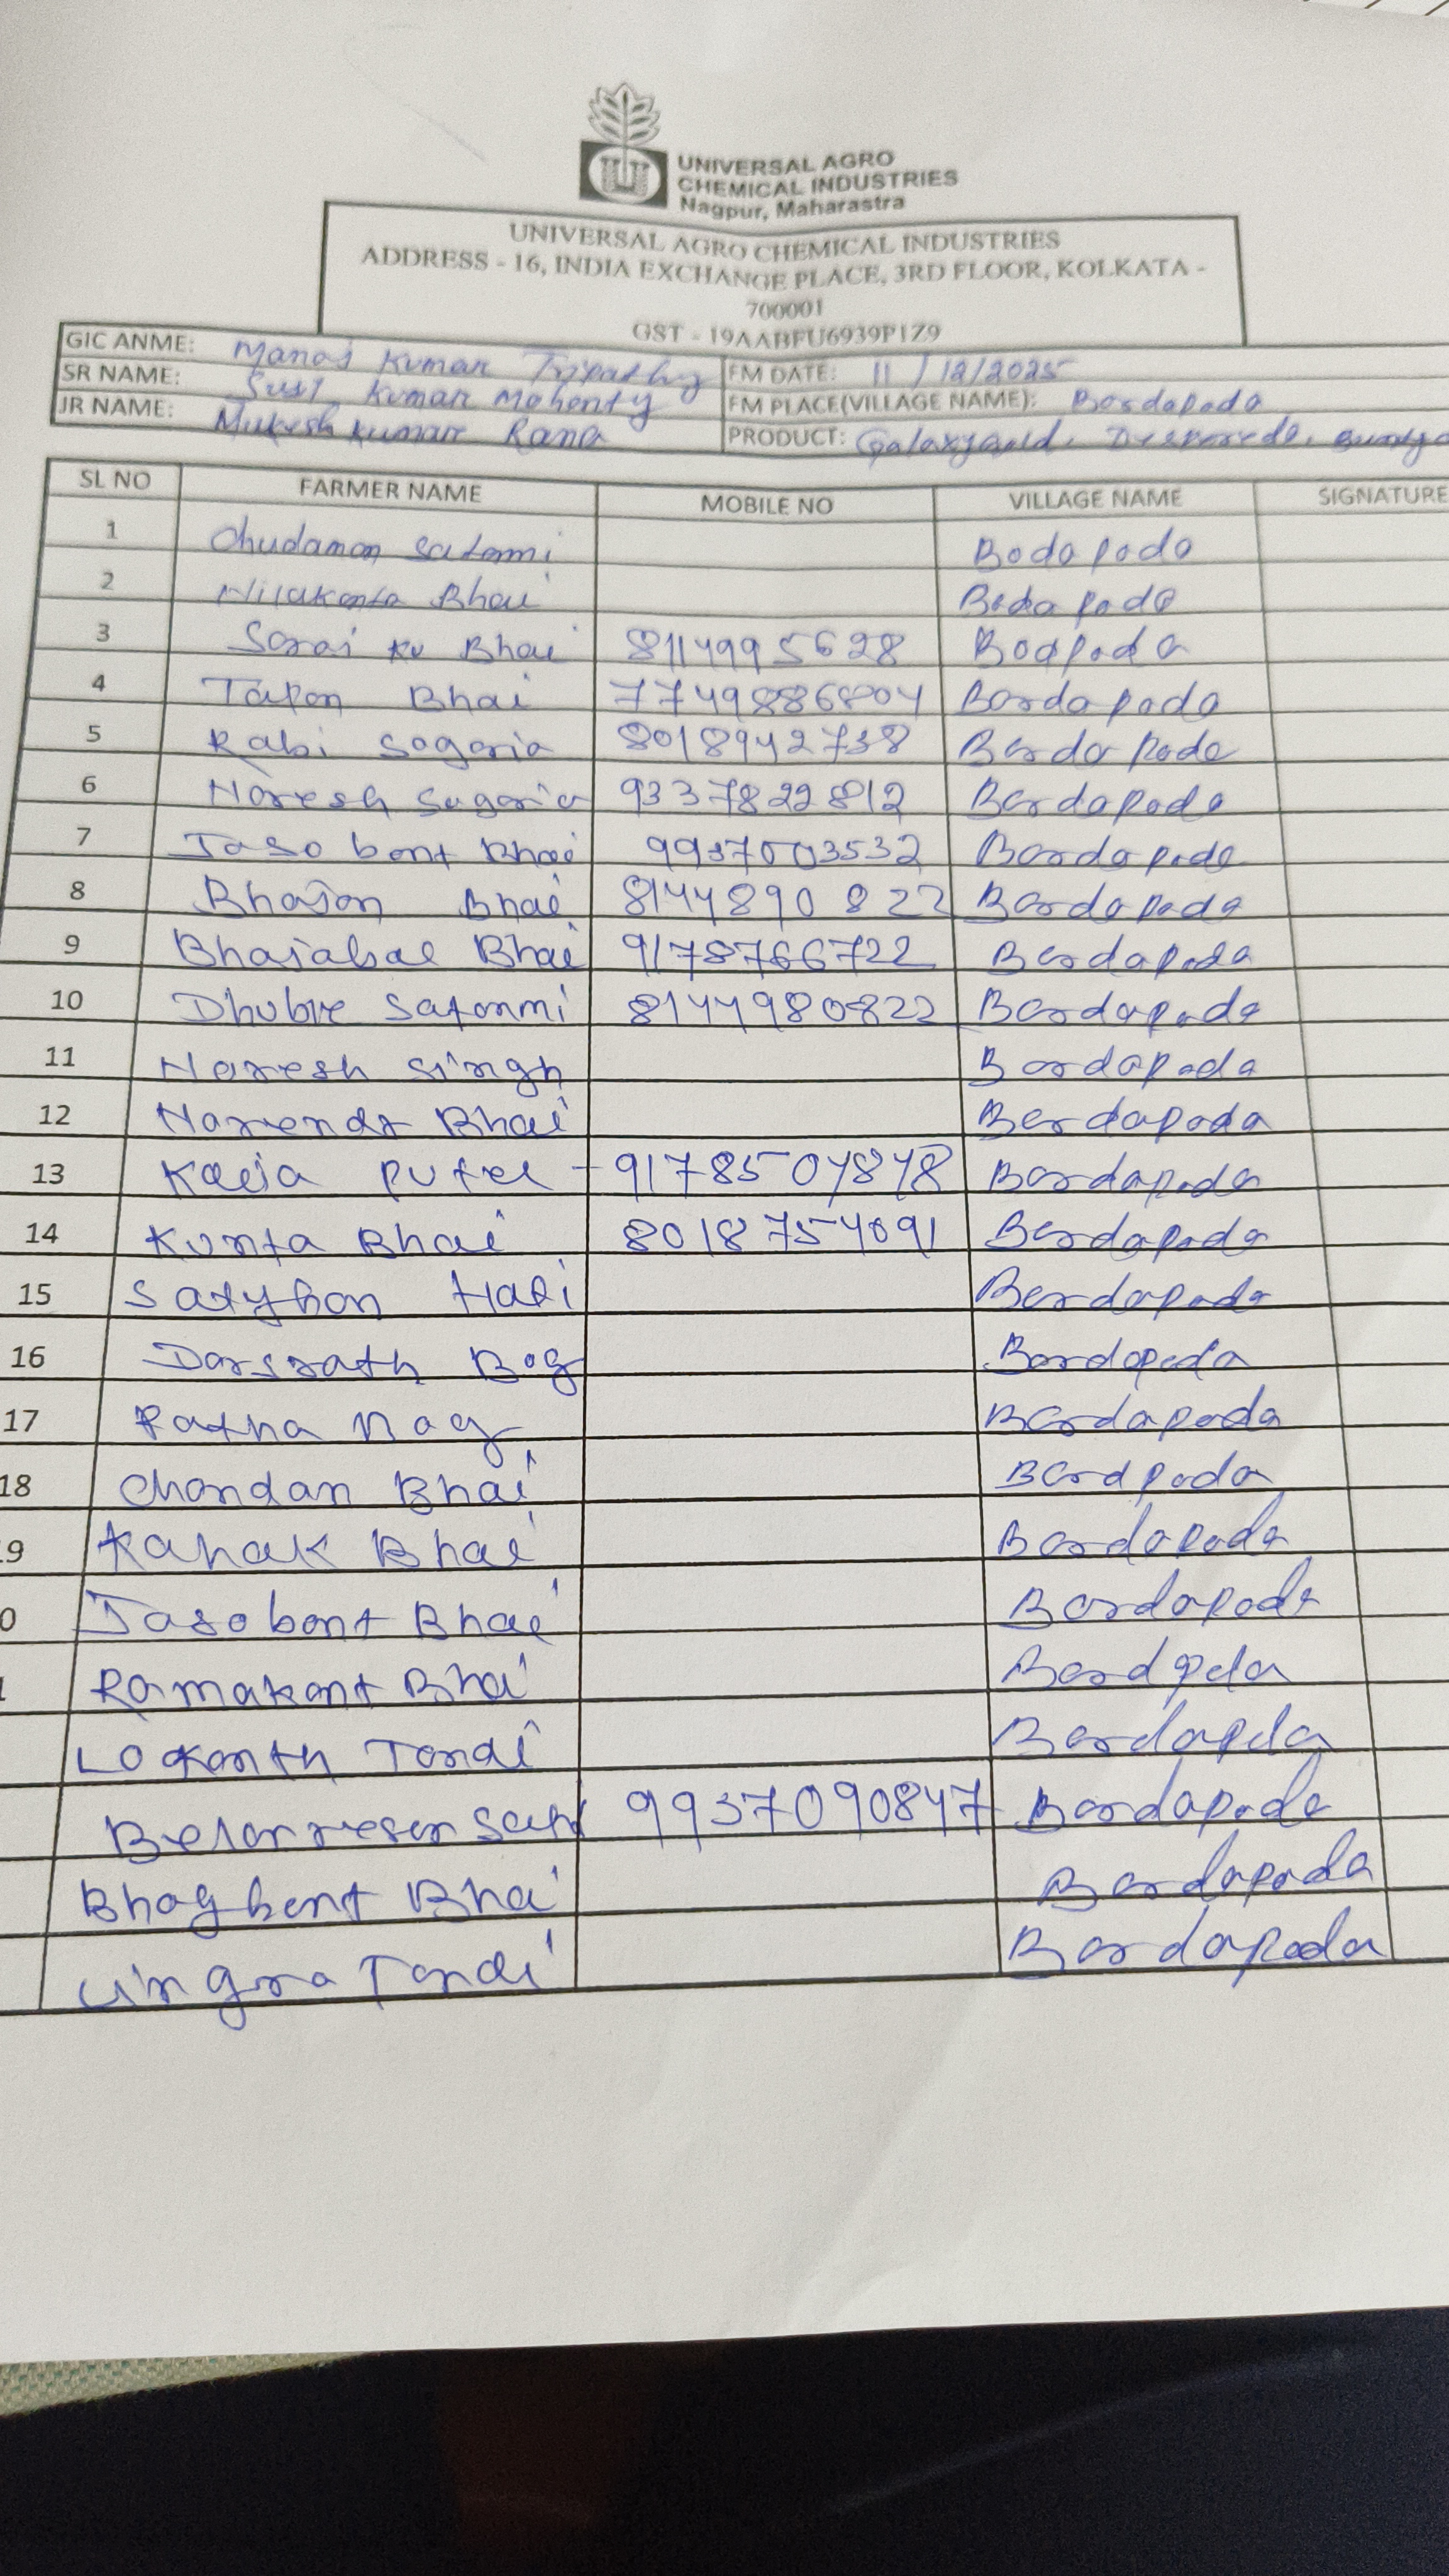 UNIVERSAL AGRO
CHEMICAL INDUSTRIES
Nagpur, Maharastra
UNIVERSAL AGRO CHEMICAL INDUSTRIES
ADDRESS - 16, INDIA EXCHANGE PLACE, 3RD FLOOR, KOLKATA -
700001
GST - 19AABFU6939P1Z9
GIC ANME: Manas Kumar Tripathy FM DATE: 11/12/2025
SR NAME: Kumar Mohenty FM PLACE(VILLAGE NAME): Bordapada
JR NAME: Mukesh Kumar Rana PRODUCT: Galaxygold,
SL NO FARMER NAME MOBILE NO VILLAGE NAME SIGNATURE
1 Chudaman Satnmi Bodapada
2 Nilakanta Bhai Bodapada
3 Saroj Ku Bhai 8114995628 Bodpada
4 Tapon Bhai 7749886804 Bordapada
5 Rabi Sagaria 8018942738 Bordapada
6 Naresh Sagaria 9337822812 Bordapada
7 Jasobont Bhai 9937003532 Bordapada
8 Bhajon Bhai 8144890822 Bordapada
9 Bhajabal Bhai 9178766722 Bordapada
10 Dhubre Satonmi 8144980822 Bordapada
11 Naresh Singh Bordapada
12 Narendr Bhai Bordapada
13 Kalia Putel - 9178504848 Bordapada
14 Kunta Bhai 8018754091 Bordapada
15 Satybon Hati Bordapada
16 Dorsrath Bag Bordapada
17 Ratna Nag Bordapada
18 Chandan Bhai Bordpada
19 Kanak Bhai Bordapada
0 Jasobont Bhai Bordapada
Ramakant Bhai Bordpda
Lokanth Tandi Bordapda
9937090847 Bordapada
Bhagbant Bhai Bordapada
Lingra Tandi Bordapada